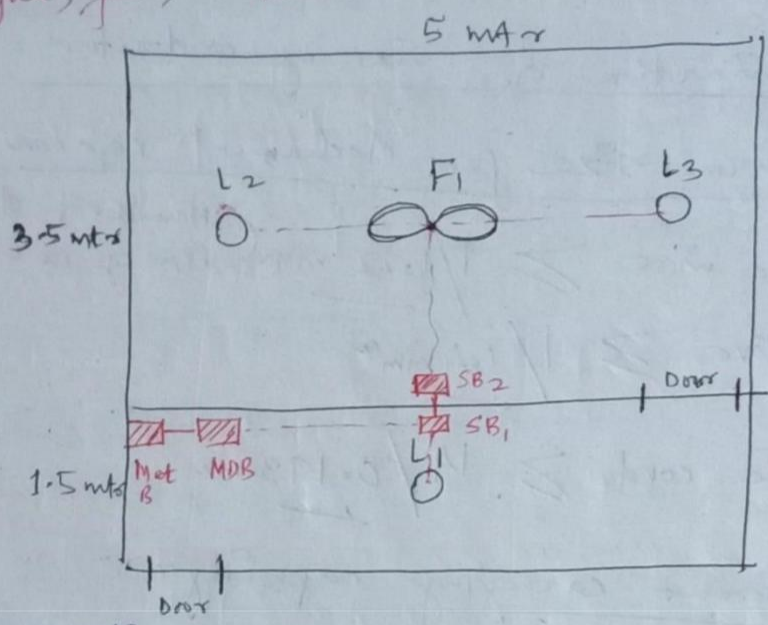 5 mtr
L2
F1
L3
3.5 mtr
SB2
Door
SB1
Met
B
MDB
L1
1.5 mtr
Door